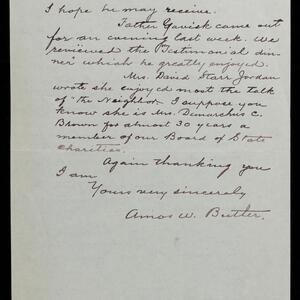 I hope he may receive.
Father Gavisk came out
for an evening last week. We
reviewed the "Testimonial din-
ner" which he greatly enjoyed.
Mrs. David Starr Jordan
wrote she enjoyed most the talk
of "the Neighbor. I suppose you
know she is Mrs. Demarchus C.
Brown for almost 30 years a
member of our Board of State
Charities.
Again thanking you
I am
Yours very sincerely
Amos W. Butler.